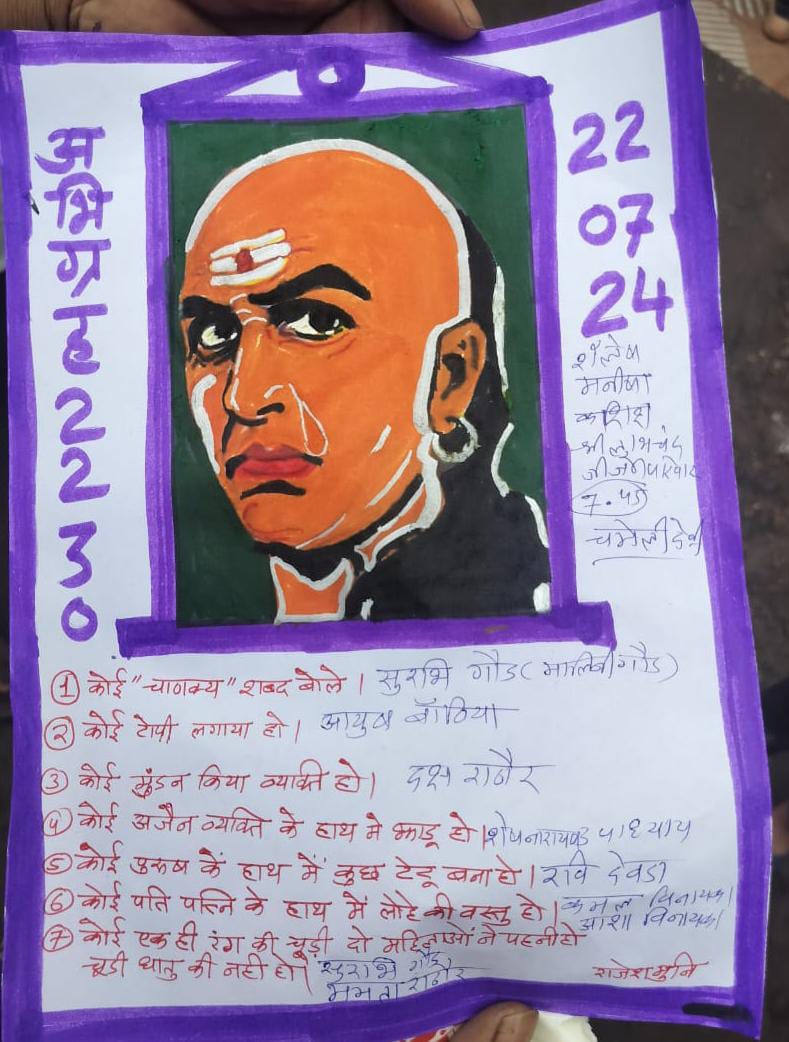 अभिग्रह 2230
22
07
24
शैलेष
मनीषा
कशिश
श्री लाभचंद
जी जैन परिवार
चमेली देवी
① कोई "चाणक्य" शब्द बोले । सुरभि गौड (मालिवी गौड)
② कोई टोपी लगाया हो । आयुष बाँठिया
③ कोई मुंडन किया व्यक्ति हो । दक्ष राठौर
④ कोई अजैन व्यक्ति के हाथ मे झाडू हो । शेषनारायण उपाध्याय
⑤ कोई पुरुष के हाथ में कुछ टेटू बना हो । रवि देवडा
⑥ कोई पति पत्नि के हाथ में लोहे की वस्तु हो । कमल विनायका
आशा विनायका
⑦ कोई एक ही रंग की चूड़ी दो महिलाओं ने पहनी हो
चूडी धातु की नही हो । सुरभि गौड
ममता राठौर
राजेश मुनि